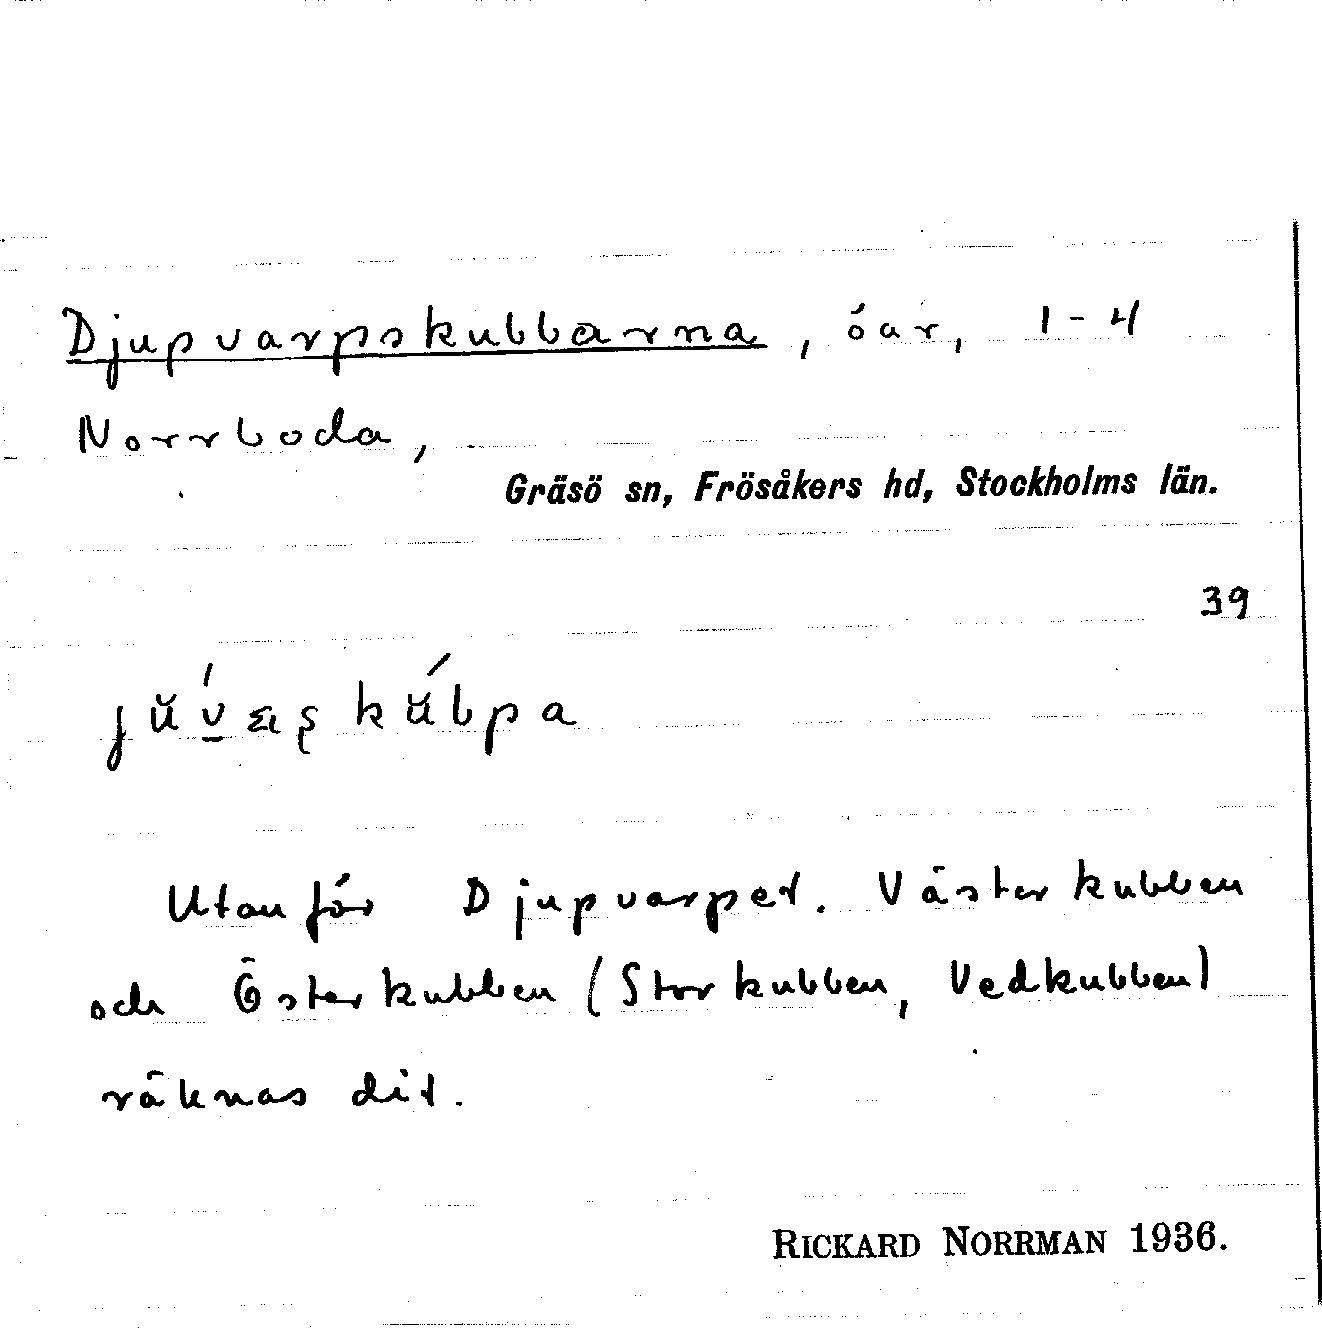 Djupvarpskubbarna, öar, 1-4
Norrboda,
Gräsö sn, Frösåkers hd, Stockholms län.
39
Utanför Djupvarpet. Västerkubben
och Österkubben (Storkubben, Vedkubben)
räknas dit.
RICKARD NORRMAN 1936.